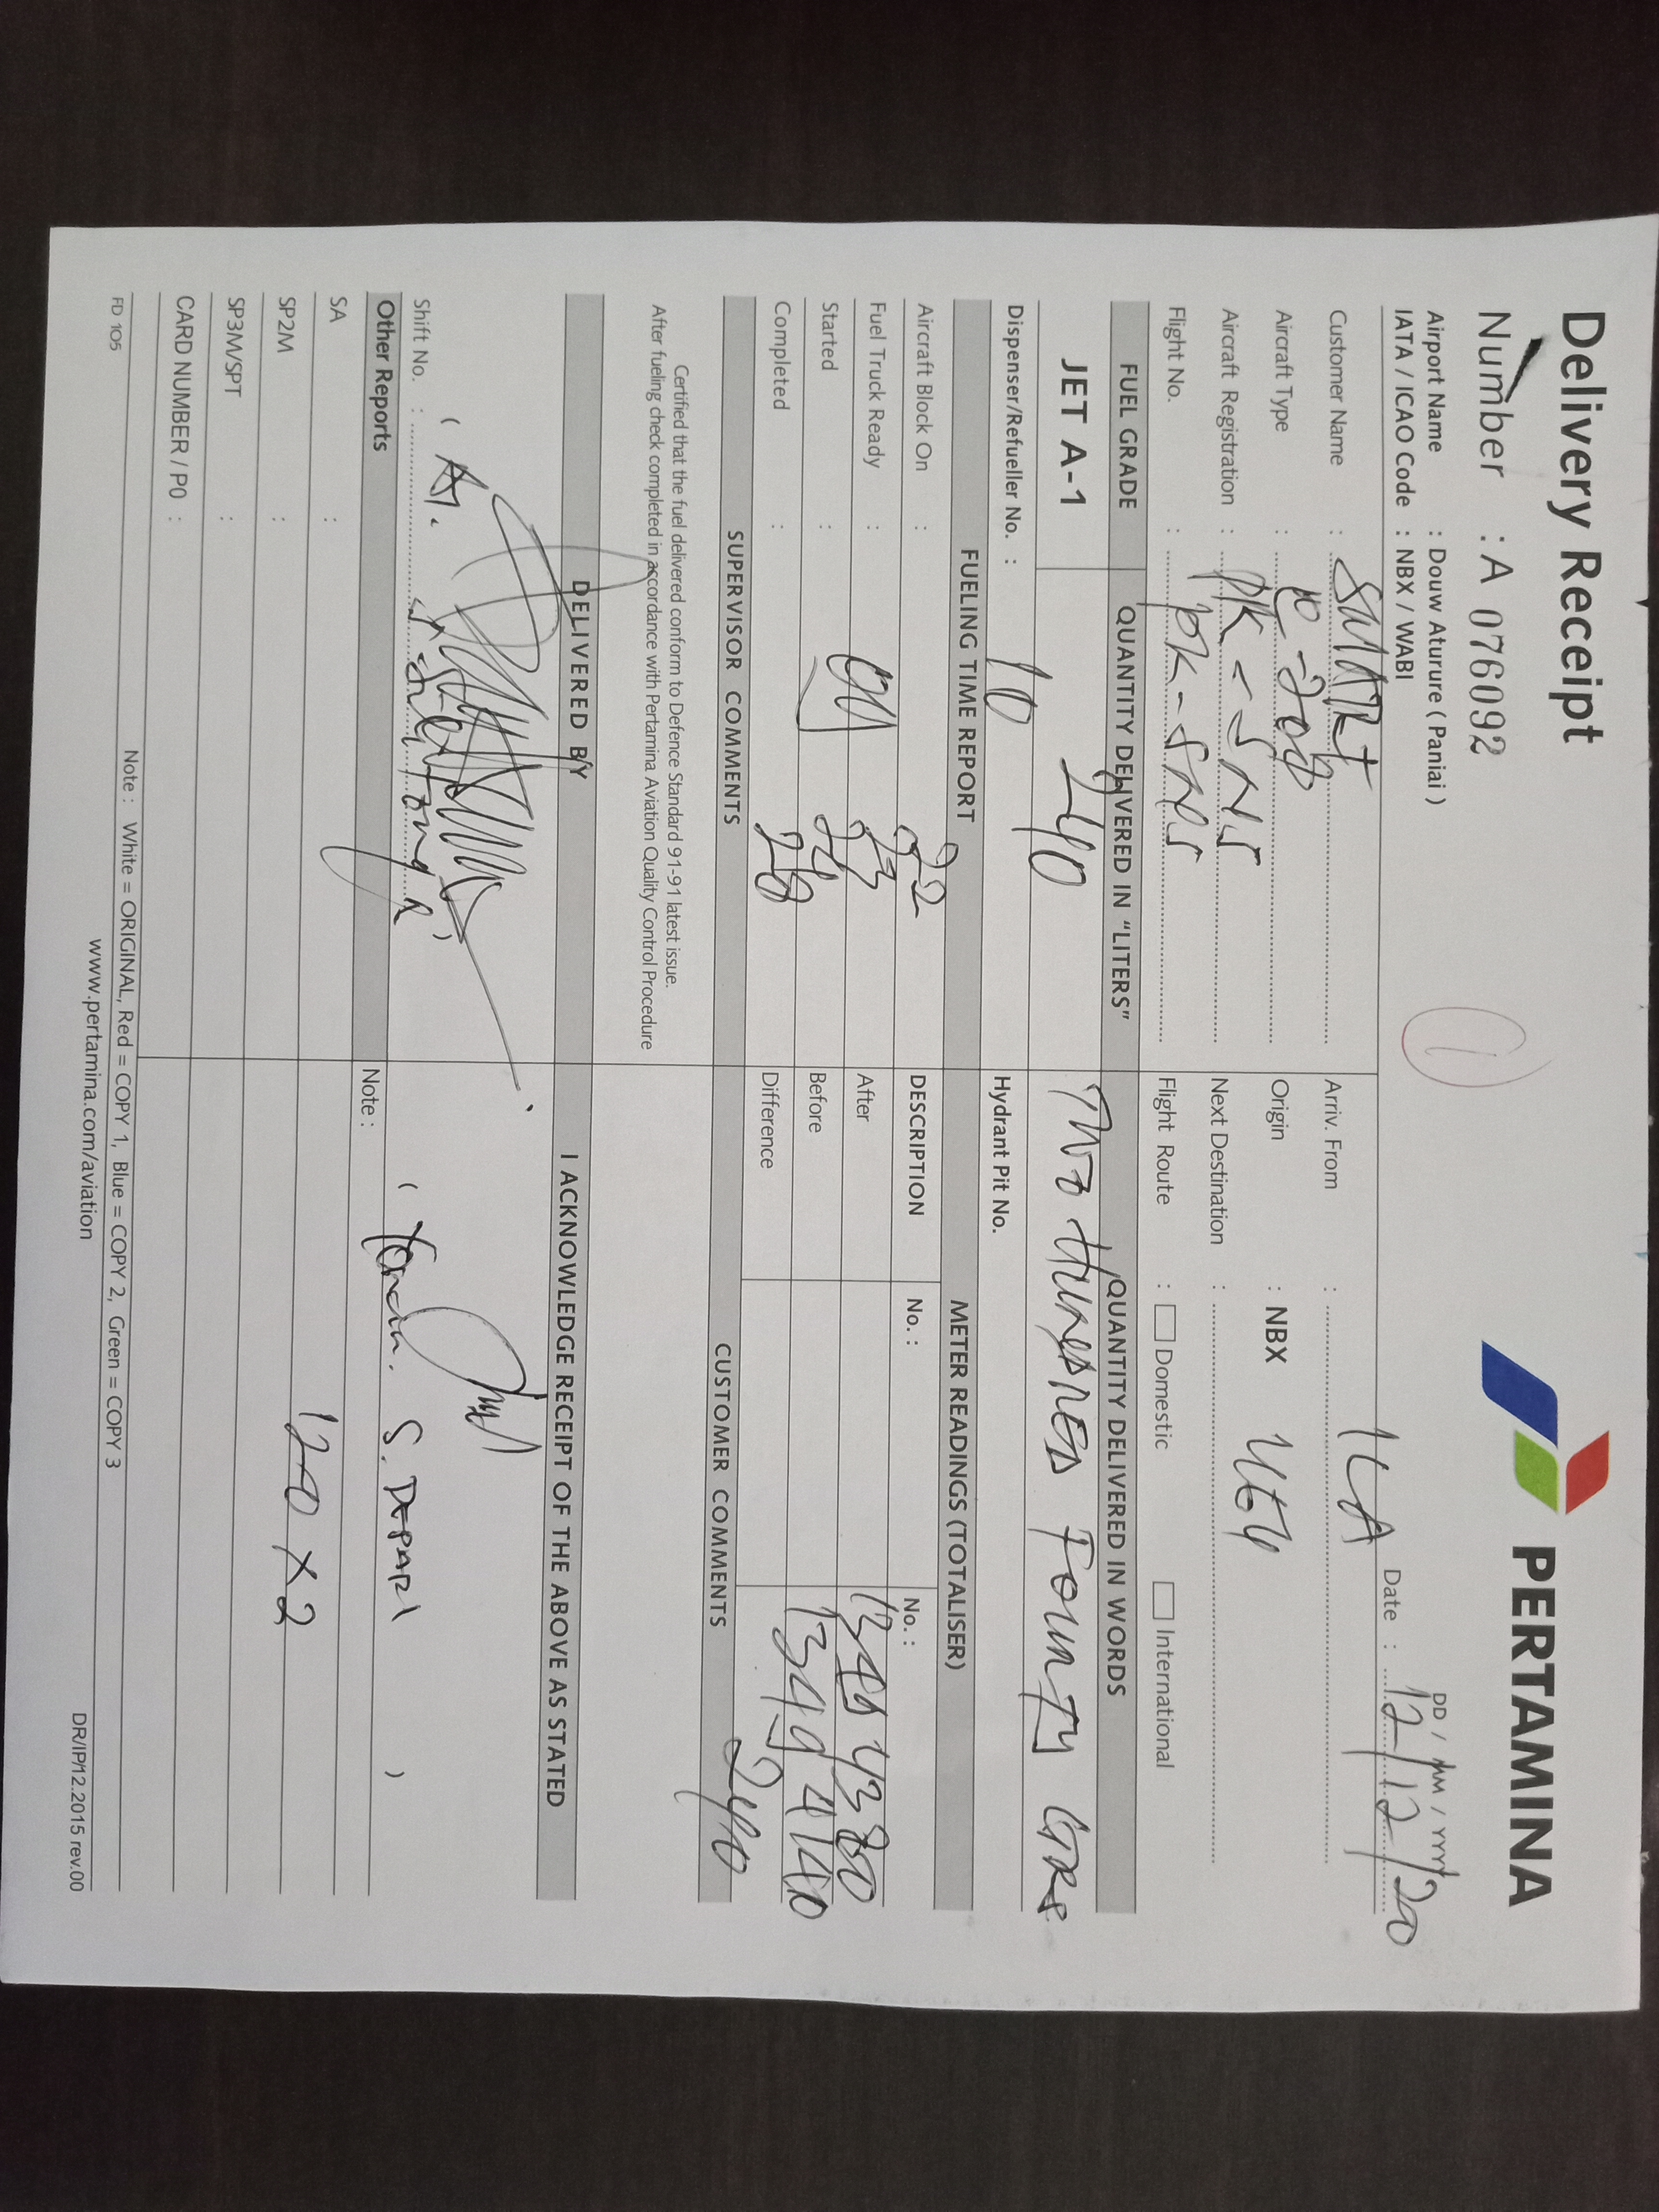 Delivery Receipt
PERTAMINA
Number : A 076092
DD / MM / YYYY
Airport Name : Douw Aturure ( Paniai )
IATA / ICAO Code : NBX / WABI
Date : 12/12/20
Customer Name : SMART
Arriv. From : ILA
Aircraft Type :
Origin : NBX
Aircraft Registration : PK - SNS
Next Destination :
Flight No. : PK - SNS
Flight Route : Domestic International
FUEL GRADE
QUANTITY DELIVERED IN "LITERS"
QUANTITY DELIVERED IN WORDS
JET A-1
240
Dispenser/Refueller No. : 10
Hydrant Pit No.
FUELING TIME REPORT
METER READINGS (TOTALISER)
Aircraft Block On : 22
DESCRIPTION No. : No. :
Fuel Truck Ready : 23
After
Started : 24
Before
Completed : 28
Difference 240
SUPERVISOR COMMENTS
CUSTOMER COMMENTS
Certified that the fuel delivered conform to Defence Standard 91-91 latest issue.
After fueling check completed in accordance with Pertamina Aviation Quality Control Procedure
DELIVERED BY
I ACKNOWLEDGE RECEIPT OF THE ABOVE AS STATED
Shift No. :
Other Reports
Note :
SA :
SP2M :
120 x 2
SP3M/SPT :
CARD NUMBER / P0 :
Note : White = ORIGINAL, Red = COPY 1, Blue = COPY 2, Green = COPY 3
FD 105
www.pertamina.com/aviation
DR/IP/12.2015 rev.00